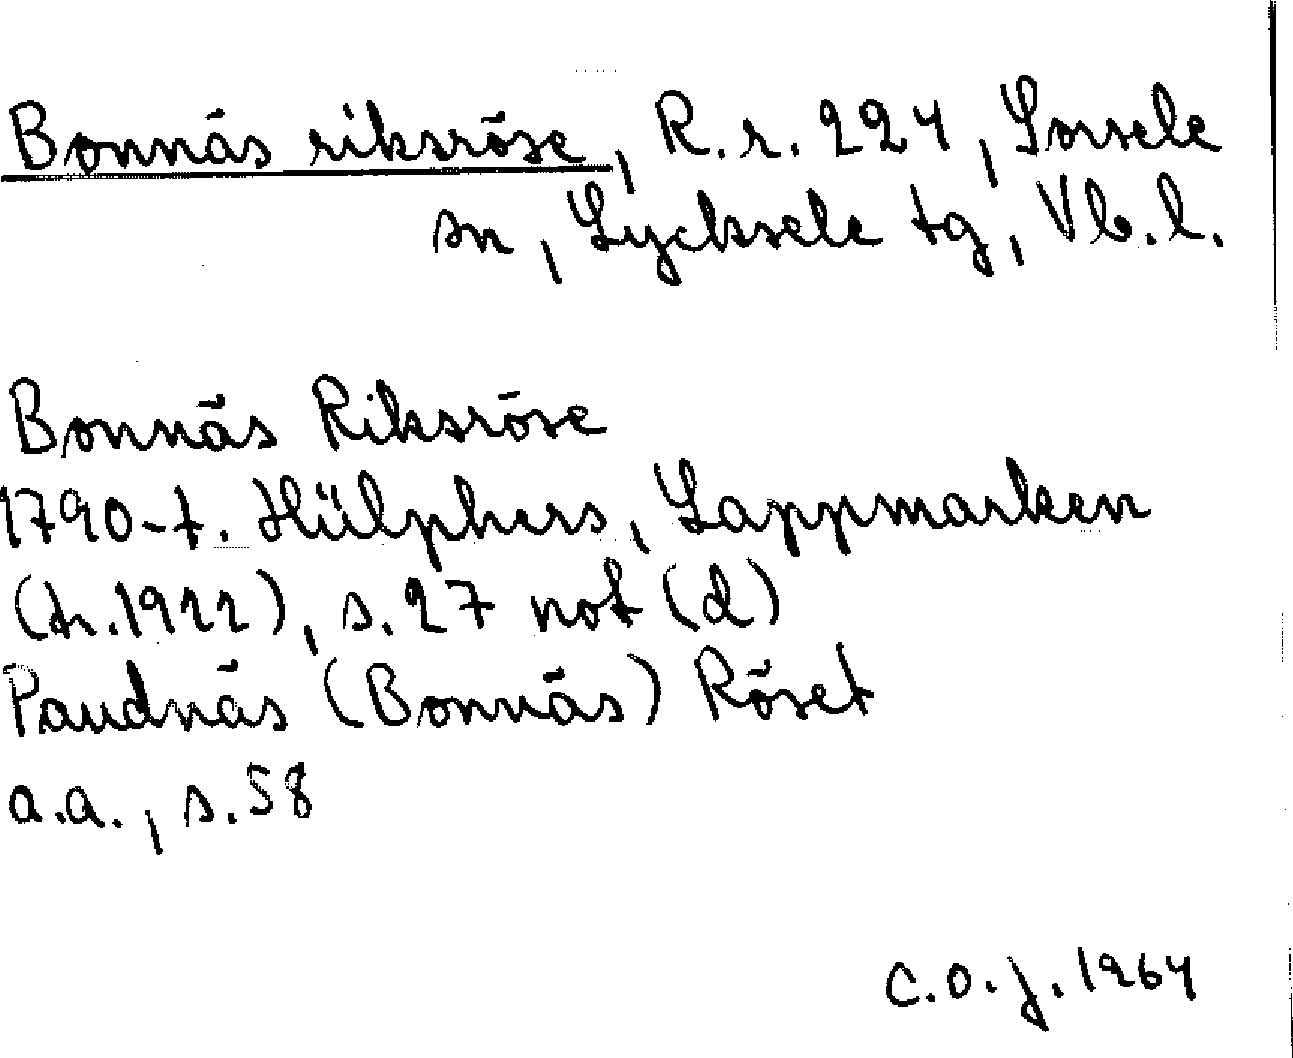 Bonnäs riksröse, R.r. 224, Sorsele
sn, Lycksele tg, Vb.l.
Bonnäs Riksröse
1790-t. Hülphers, Lappmarken
(tr. 1922), s. 27 not (d)
Paudnäs (Bonnäs) Röset
a.a., s. 58
C.O.J. 1964